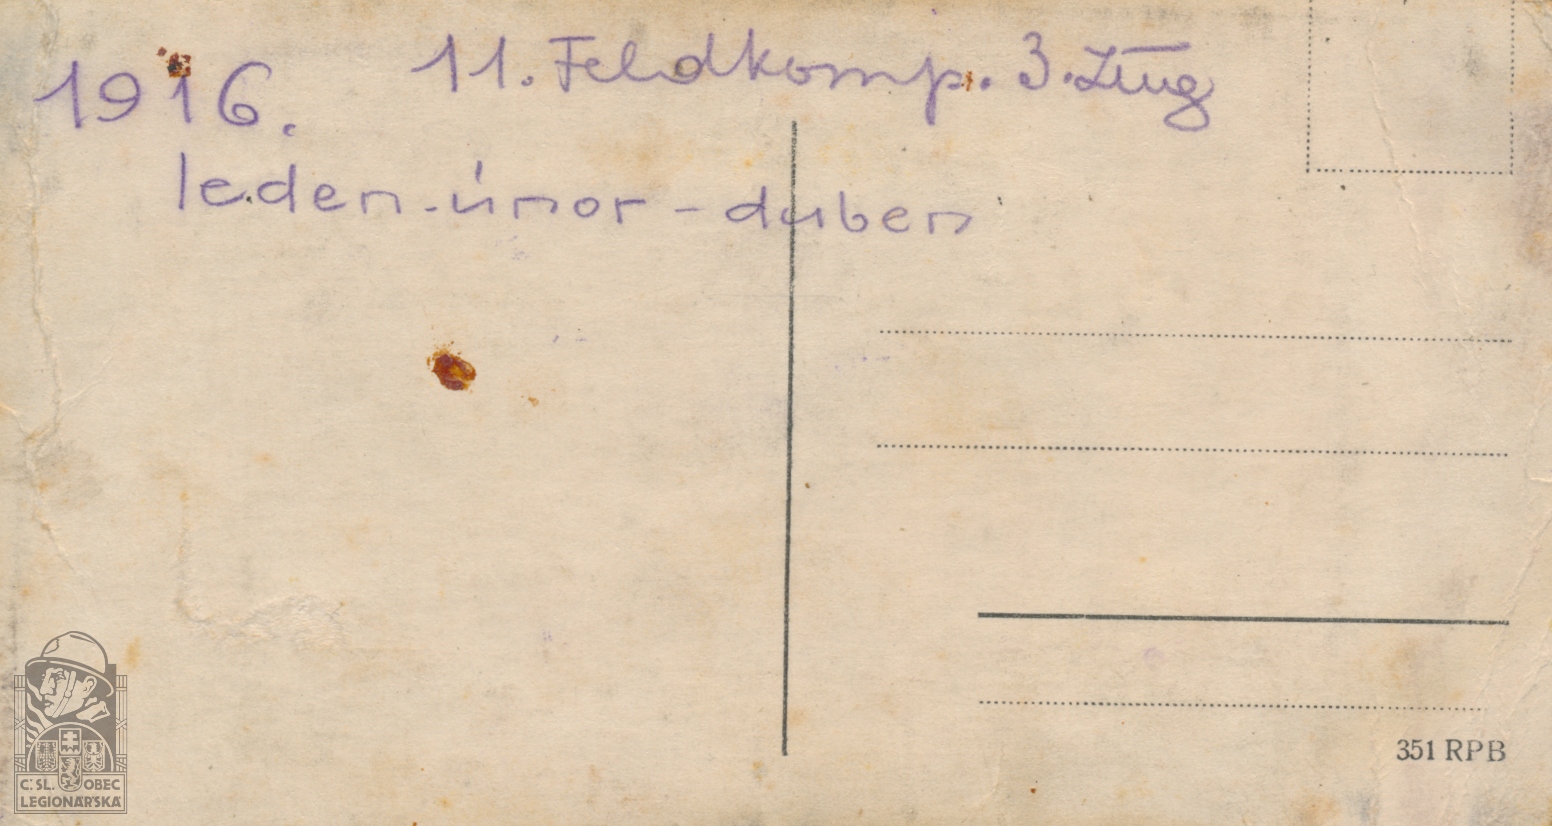 1916. 11. Feldkomp. 3. Zug
leden - únor - duben
351 RPB
Č.SL. OBEC
LEGIONÁŘSKÁ